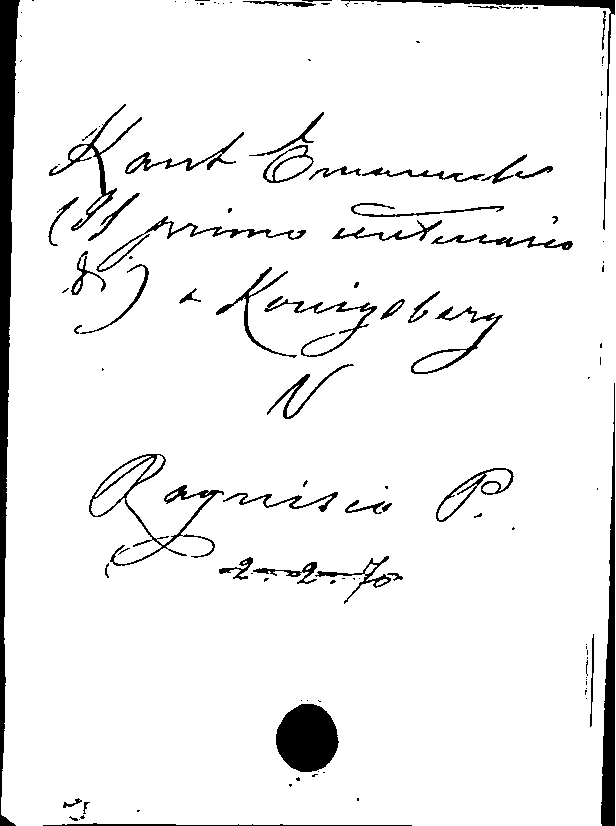 Kant Emanuele
(Il primo centenario
di) a Königsberg
V
Ragnisco P.
2. 2. 70